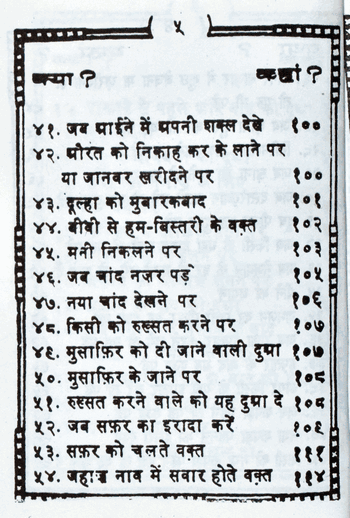 ५
क्या ? कहां ?
४१. जब आईने में अपनी शक्ल देखे १००
४२. औरत को निकाह कर के लाने पर
या जानवर खरीदने पर १००
४३. दूल्हा को मुबारकबाद १०१
४४. बीवी से हम-बिस्तरी के वक़्त १०२
४५. मनी निकलने पर १०३
४६. जब चांद नज़र पड़े १०५
४७. नया चांद देखने पर १०६
४८. किसी को रुख़्सत करने पर १०७
४९. मुसाफ़िर को दी जाने वाली दुआ १०७
५०. मुसाफ़िर के जाने पर १०८
५१. रुख़्सत करने वाले को यह दुआ दे १०८
५२. जब सफ़र का इरादा करें १०९
५३. सफ़र को चलते वक़्त १११
५४. जहाज़ नाव में सवार होते वक़्त ११४